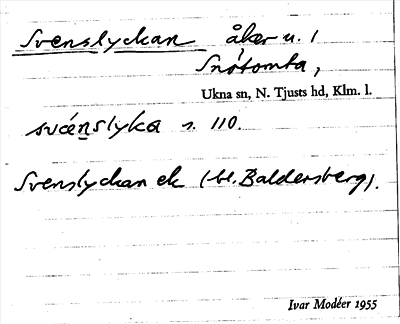 Svenslyckan åker u. 1
Snötomta,
Ukna sn, N. Tjusts hd, Klm. l.
svénslyka s. 110.
Svenslyckan ek (bl. Baldersberg).
Ivar Modéer 1955